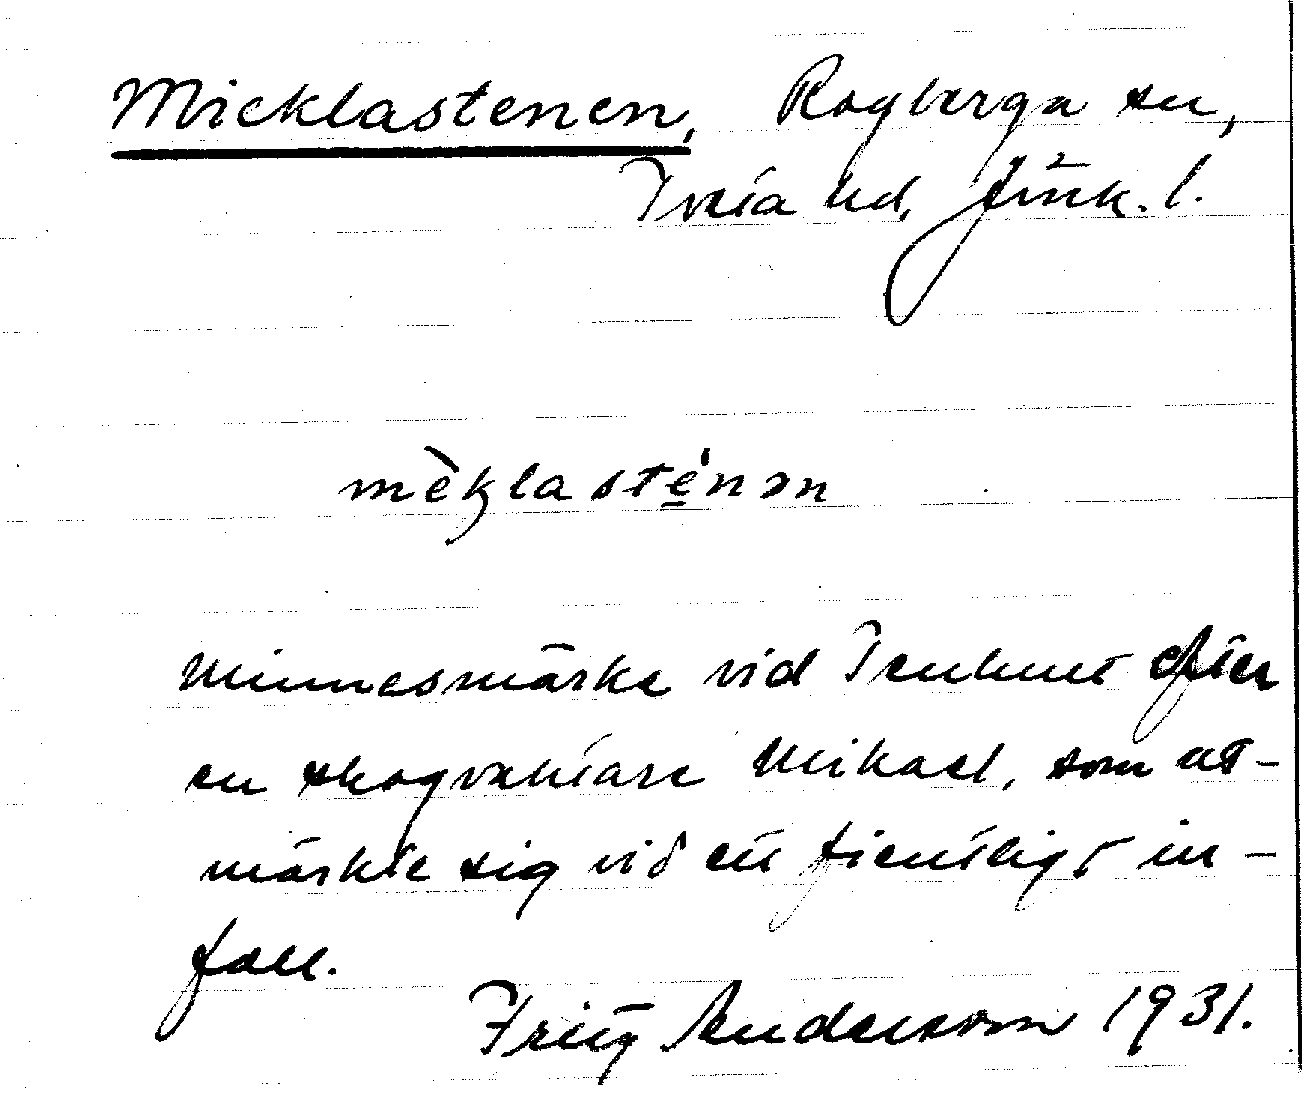 Micklastenen, Rogberga sn,
Tveta hd, Jönk. l.
mèklasté̱nən
Minnesmärke vid Tenhult efter
en skogvaktare Mikael, som ut-
märkte sig vid ett fientligt in-
fall.
Fritz Andersson 1931.